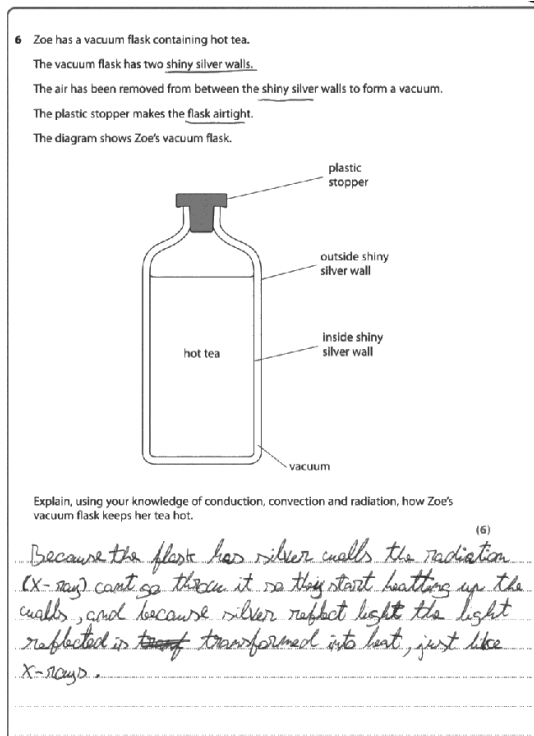 6 Zoe has a vacuum flask containing hot tea.
The vacuum flask has two shiny silver walls.
The air has been removed from between the shiny silver walls to form a vacuum.
The plastic stopper makes the flask airtight.
The diagram shows Zoe's vacuum flask.
plastic
stopper
outside shiny
silver wall
hot tea
inside shiny
silver wall
vacuum
Explain, using your knowledge of conduction, convection and radiation, how Zoe's
vacuum flask keeps her tea hot.
(6)
Because the flask has silver walls the radiation
(x-ray) cant go throu it so they start heatting up the
walls, and because silver reflect light the light
reflected is transformed into heat, just like
x-rays.